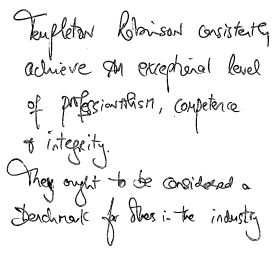 Templeton Robinson consistently
achieve an exceptional level
of professionalism, competence
& integrity.
They ought to be considered a
benchmark for others in the industry